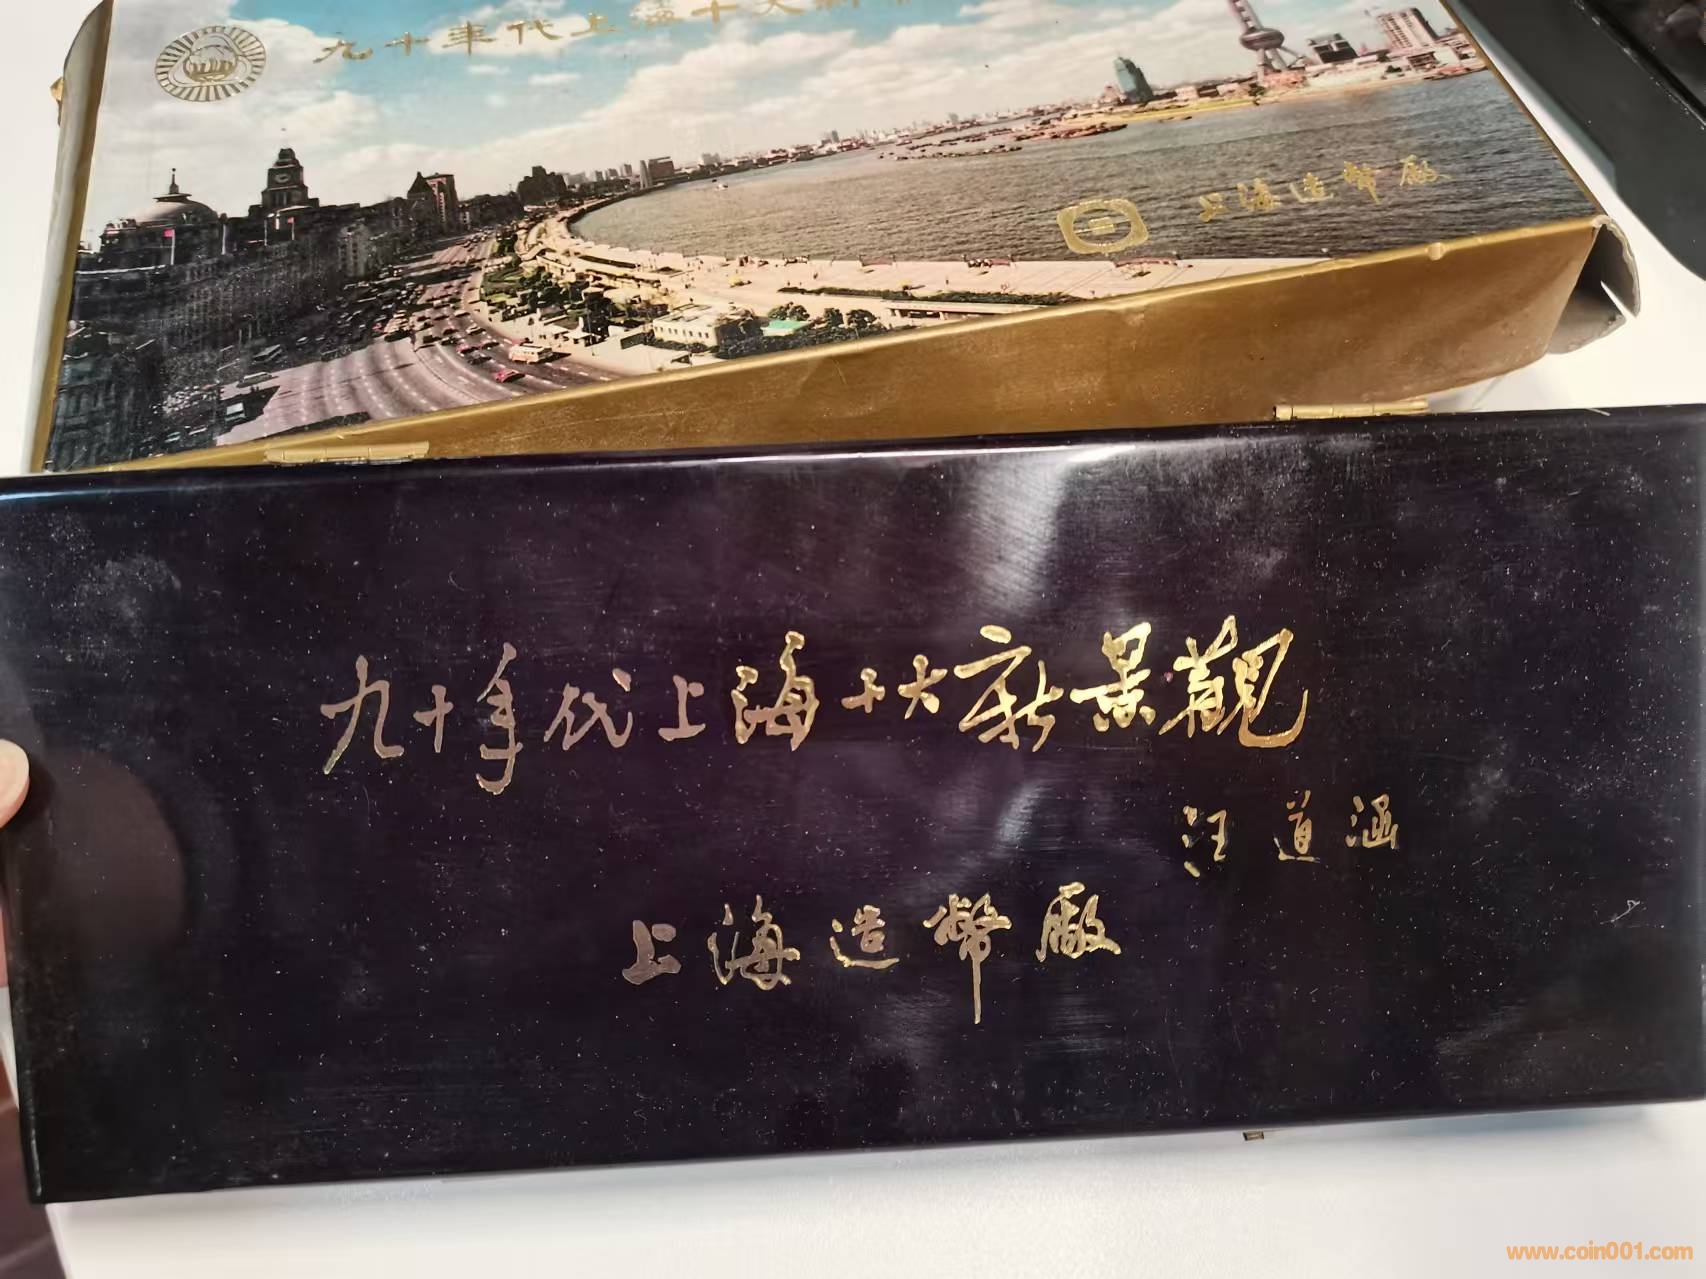 九十年代上海十大新
上海造幣廠
九十年代上海十大新景觀
汪道涵
上海造幣廠
www.coin001.com